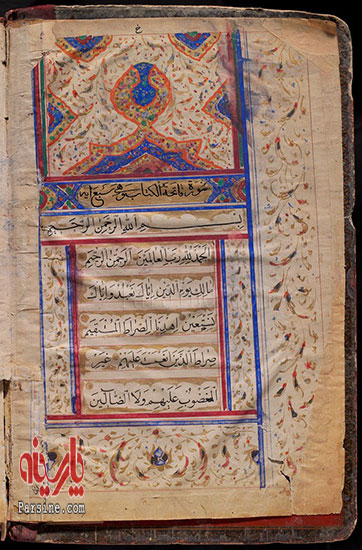 سورة فاتحة الكتاب وهي سبع آية
بسم الله الرحمن الرحيم
الحمد لله رب العالمين الرحمن الرحيم
مالك يوم الدين اياك نعبد واياك
نستعين اهدنا الصراط المستقيم
صراط الذين انعمت عليهم غير
المغضوب عليهم ولا الضالين
پارسینه
Parsine.com